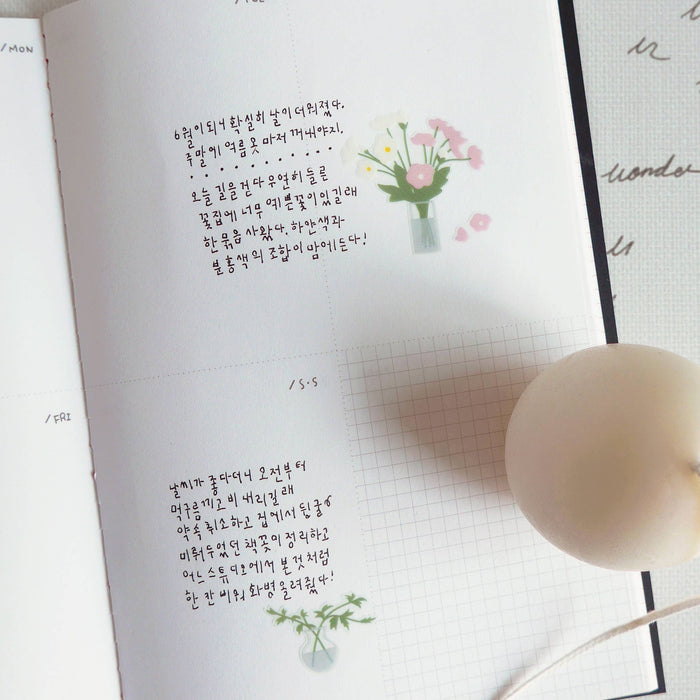 /MON
6월이 되니 확실히 날이 더워졌다.
주말에 여름옷 마저 꺼내야지.
오늘 길을 걷다 우연히 들른
꽃집에 너무 예쁜 꽃이 있길래
한 묶음 사왔다. 하얀색과
분홍색의 조합이 맘에 든다!
/S·S
/FRI
날씨가 좋다더니 오전부터
먹구름 끼고 비 내리길래
약속 취소하고 집에서 뒹굴
미뤄두었던 책꽂이 정리하고
어느 스튜디오에서 본 것처럼
한 칸 비워 화병 올려줬다!
wonder